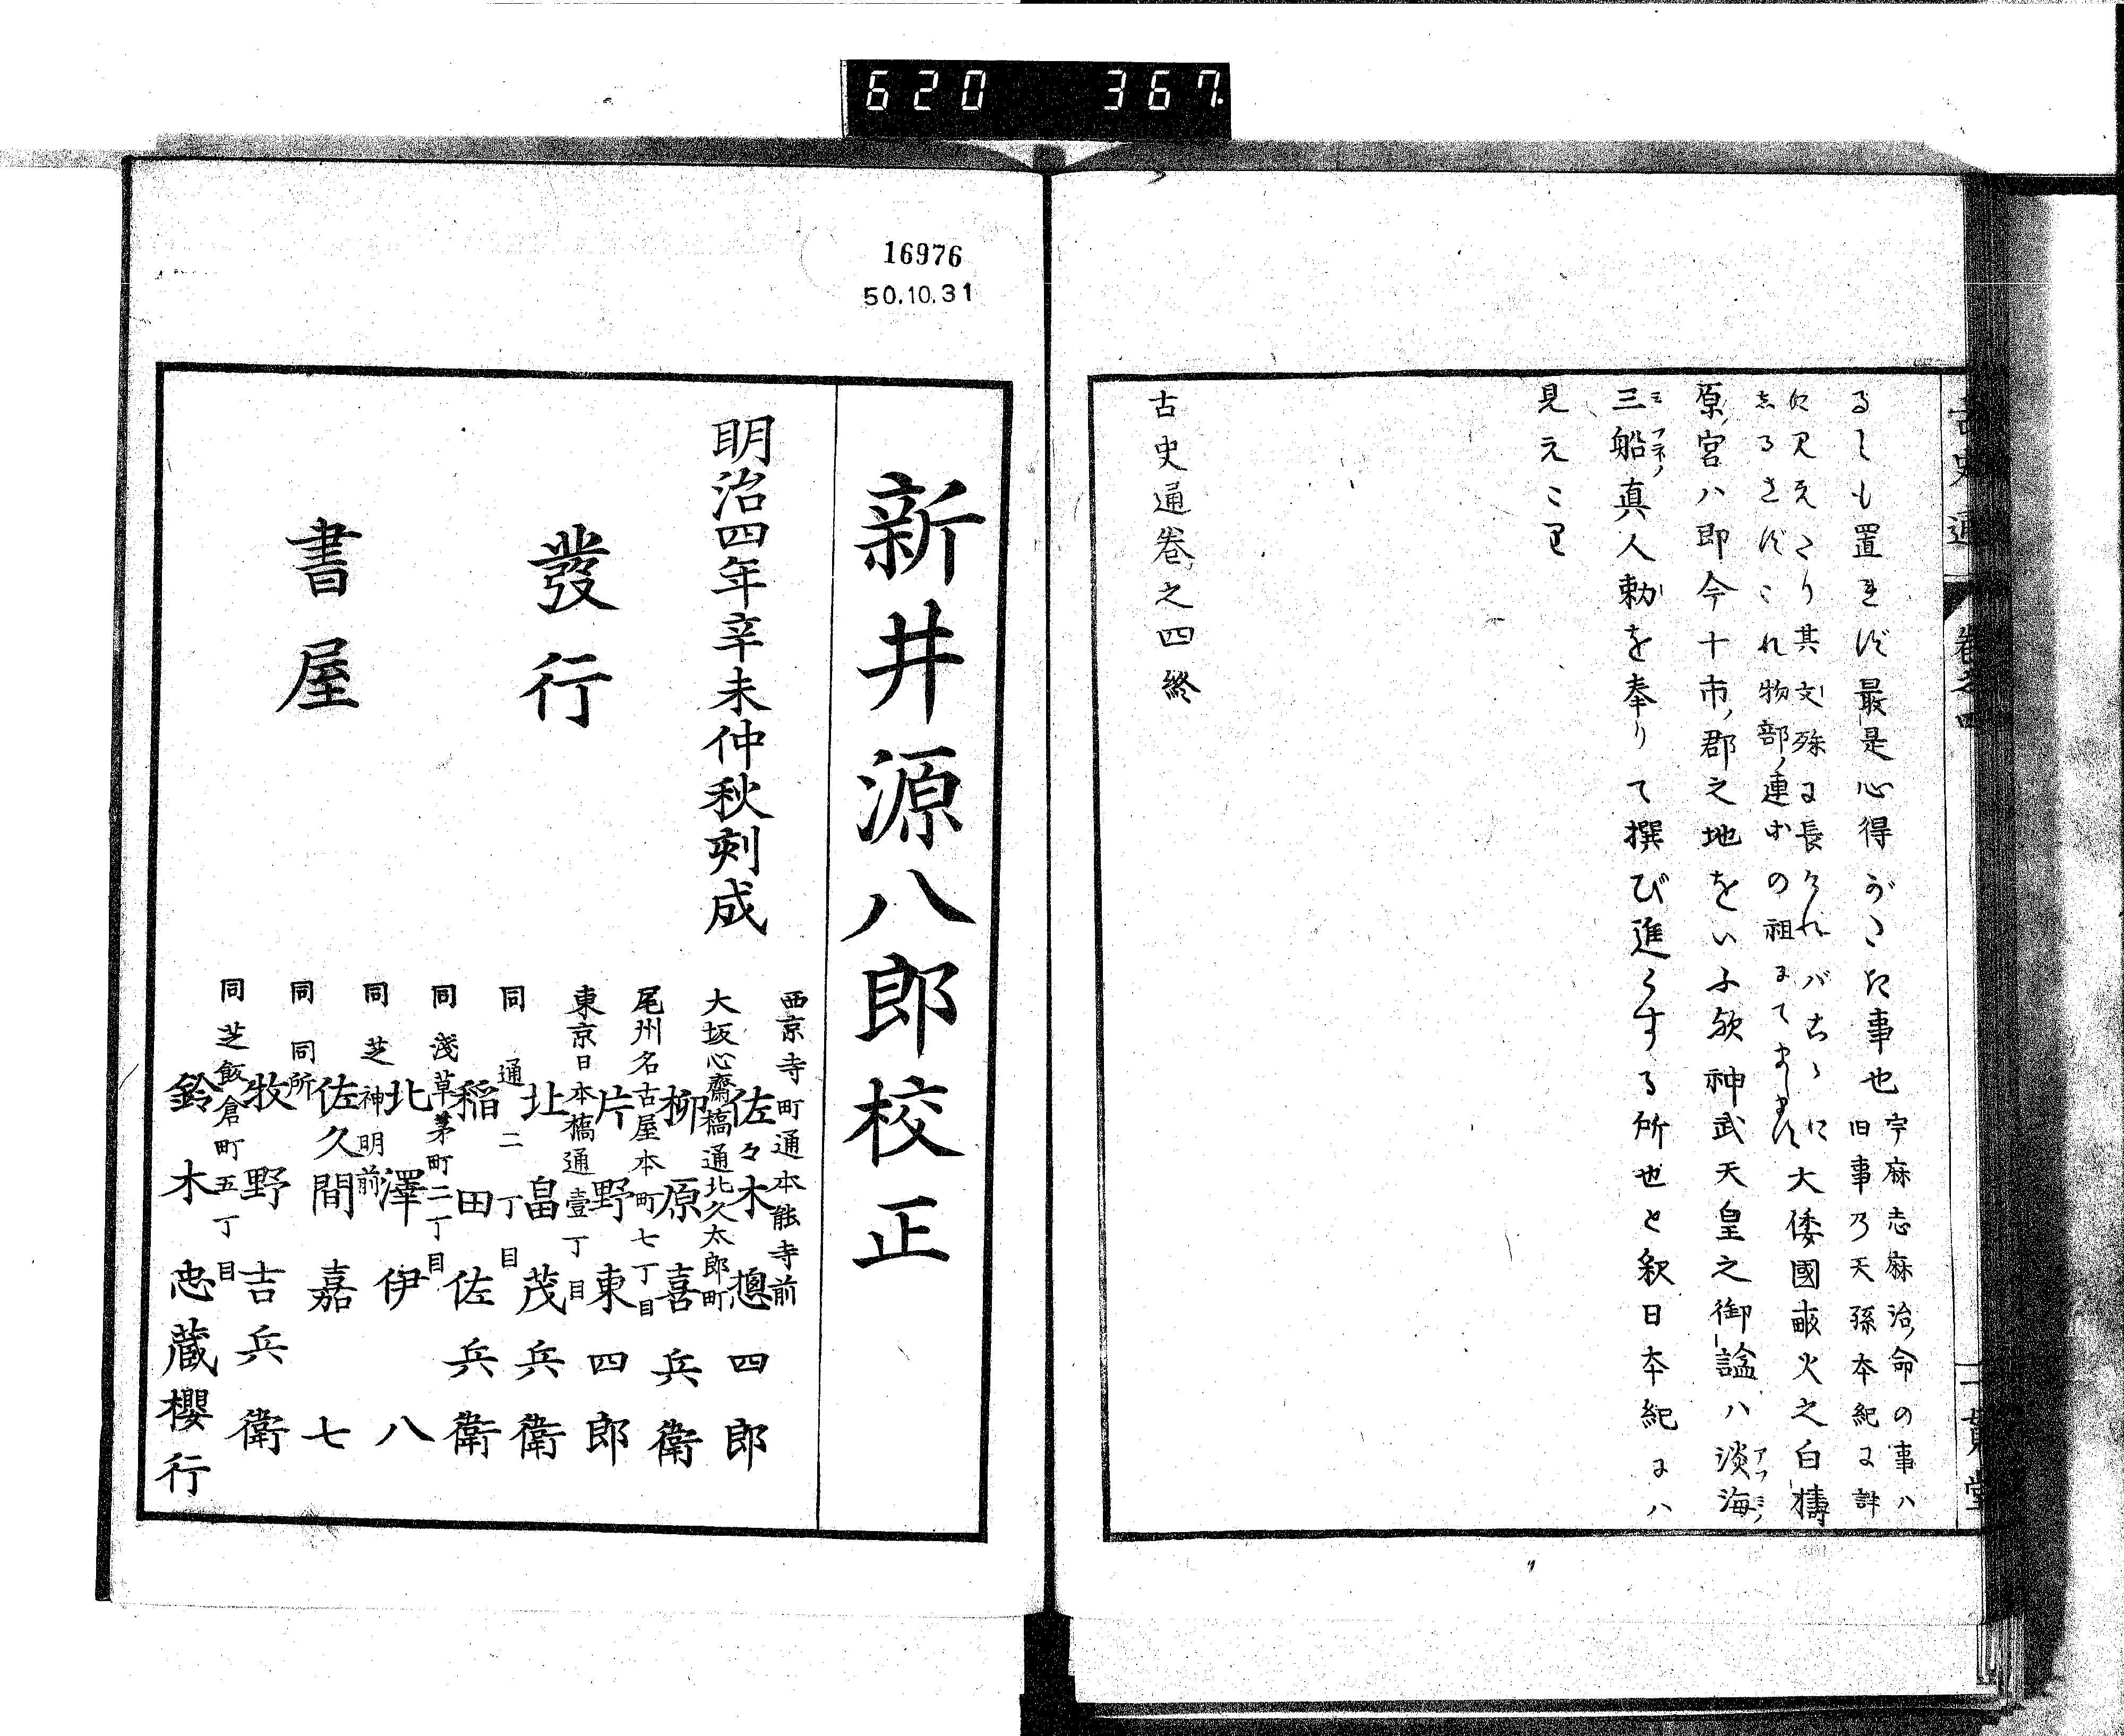 620 367
るしも置ざれば最是心得がたき事也
宇麻志麻治ノ命の事ハ
旧事乃天孫本紀に詳
に見えたり其文殊に長けれバこゝに
しるさずこれ物部ノ連等の祖にてまします
大倭國畝火之白檮
原ノ宮ハ即今十市ノ郡之地をいふ歟神武天皇之御諡ハ淡海
アフミノ
三船真人勅を奉りて撰び進らする所也と釈日本紀にハ
ミフネノ
見えたり
古史通巻之四終
古史通 巻之四
16976
50.10.31
新井源八郎校正
明治四年辛未仲秋刻成
發行
書屋
西京寺町通本能寺前
佐々木惣四郎
大坂心齋橋通北久太郎町
柳原喜兵衛
尾州名古屋本町七丁目
片野東四郎
東京日本橋通壹丁目
北畠茂兵衛
同通二丁目
稲田佐兵衛
同淺草茅町二丁目
北澤伊八
同芝神明前
佐久間嘉七
同同所
牧野吉兵衛
同芝飯倉町五丁目
鈴木忠蔵櫻行